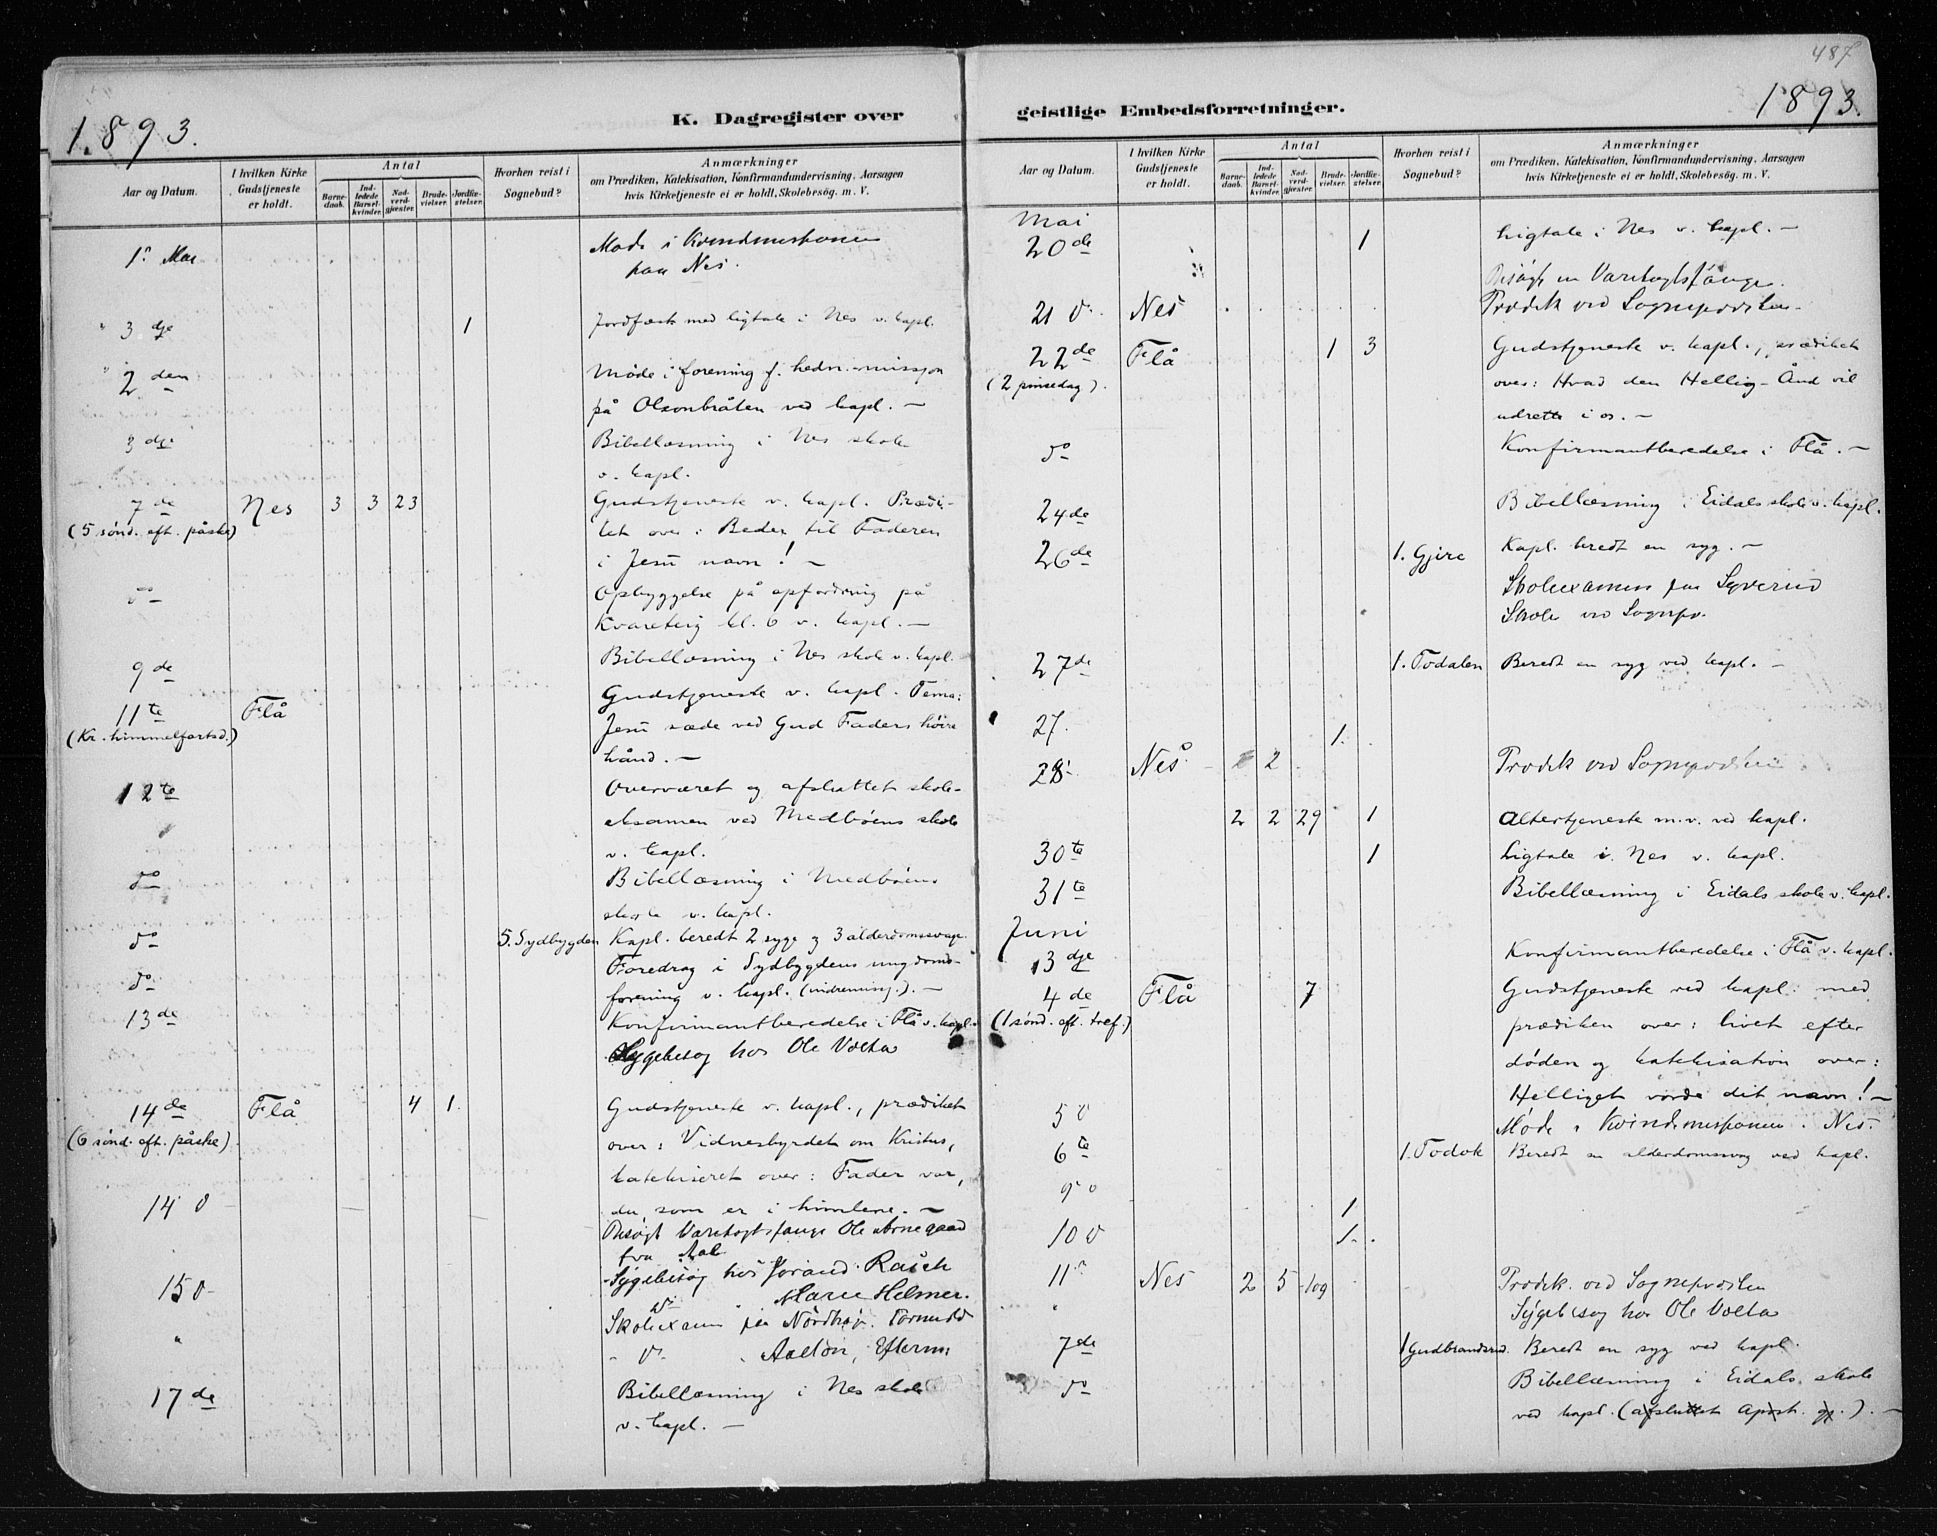 487
1893.
K. Dagregister over
geistlige Embedsforretninger.
1893.
Aar og Datum.
I hvilken Kirke Gudstjeneste er holdt.
Antal
Barnedaab.
Indledede Barselkvinder.
Nadverdgjester.
Brudevielser.
Jordfæstelser.
Hvorhen reist i Sognebud?
Anmærkninger
om Prædiken, Katekisation, Konfirmandundervisning, Aarsagen
hvis Kirketjeneste ei er holdt, Skolebesøg. m. V.
1ste Mai Møde i Kvindemissionen
paa Nes.
" 3dje 1 Jordfæst med ligtale i Nes v. kapl.
" 2den Møde i forening f. hedn.-missjon
på Olsonbråten ved kapl. —
3dje Bibellæsning i Nes skole
v. kapl.
7de Nes 3 3 23 Gudstjeneste v. kapl. Prædi-
(5 sønd. eft. påske) ket over: Beder til Faderen
i Jesu navn! —
do Opbyggelse på opfordring på
Kvareteig kl. 6 v. kapl. —
9de Bibellæsning i Nes skole v. kapl.
11te Flå Gudstjeneste v. kapl. Tema:
(Kr. himmelfartsd.) Jesu sæde ved Gud Faders høire
hånd. —
12te Overværet og afsluttet skole-
eksamen ved Medbøens skole
v. kapl.
do Bibellæsning i Medbøens
skole v. kapl.
do 5. Sydbygden Kapl. beredt 2 syge og 3 alderdomssvage.
do Foredrag i Sydbygdens ungdoms-
forening v. kapl. (indremisj.). —
13de Konfirmantberedelse i Flå v. kapl.
Sygebesøg hos Ole Volta
14de Flå 4 1. Gudstjeneste v. kapl., prædiket
(6 sønd. eft. påske) over: Vidnesbyrdet om Kristus,
katekiseret over: Fader vor,
du, som er i himlene. —
14 d Besøgt Varetægtsfange Ole Arnegaard
fra Aal
15 d Sygebesøg hos Jorand Rasch
do Marie Helmer.
" Skoleexamen paa Nordhøv. Formidd
" do " Aaltön, Efterm
17de Bibellæsning i Nes skole
v. kapl. —
Aar og Datum.
I hvilken Kirke Gudstjeneste er holdt.
Antal
Barnedaab.
Indledede Barselkvinder.
Nadverdgjester.
Brudevielser.
Jordfæstelser.
Hvorhen reist i Sognebud?
Anmærkninger
om Prædiken, Katekisation, Konfirmandundervisning, Aarsagen
hvis Kirketjeneste ei er holdt, Skolebesøg. m. V.
Mai
20de 1 Ligtale i Nes v. kapl. —
Besøgt en Varetægtsfange.
21 d. Nes Prædik ved Sognepræsten.
22de Flå 1 3 Gudstjeneste v. kapl., prædiket
(2 pinsedag). over: Hvad den Hellig-Ånd vil
udrette i os. —
do Konfirmantberedelse i Flå. —
24de Bibellæsning i Eidals skole v. kapl.
26de 1. Gjire Kapl. beredt en syg. —
Skoleexamen paa Syverud
Skole ved Sognepr.
27de 1. Todalen Beredt en syg ved kapl. —
27. 1.
28. Nes 2 2 Prædik ved Sognepræsten
2 2 29 1 Altertjeneste m. v. ved kapl.
30te 1 Ligtale i Nes v. kapl.
31te Bibellæsning i Eidals skole v. kapl.
Juni
3dje Konfirmantberedelse i Flå v. kapl.
4de Flå 7 Gudstjeneste ved kapl. med
(1 sønd. eft. tref.) prædiken over: livet efter
døden og katekisation over:
Helliget vorde dit navn! —
5 d Møde i Kvindemissionen i Nes.
6te 1. Todok Beredt en alderdomssvag ved kapl.
9 d 1
10 d 1.
11 d Nes 2 5 109 Prædik. ved Sognepræsten
" Sygebesøg hos Ole Volta
7de 1 Gudbrandsrud. Beredt en syg ved kapl.
do Bibellæsning i Eidals skole
ved kapl. (afsluttet Apost. gj.). —